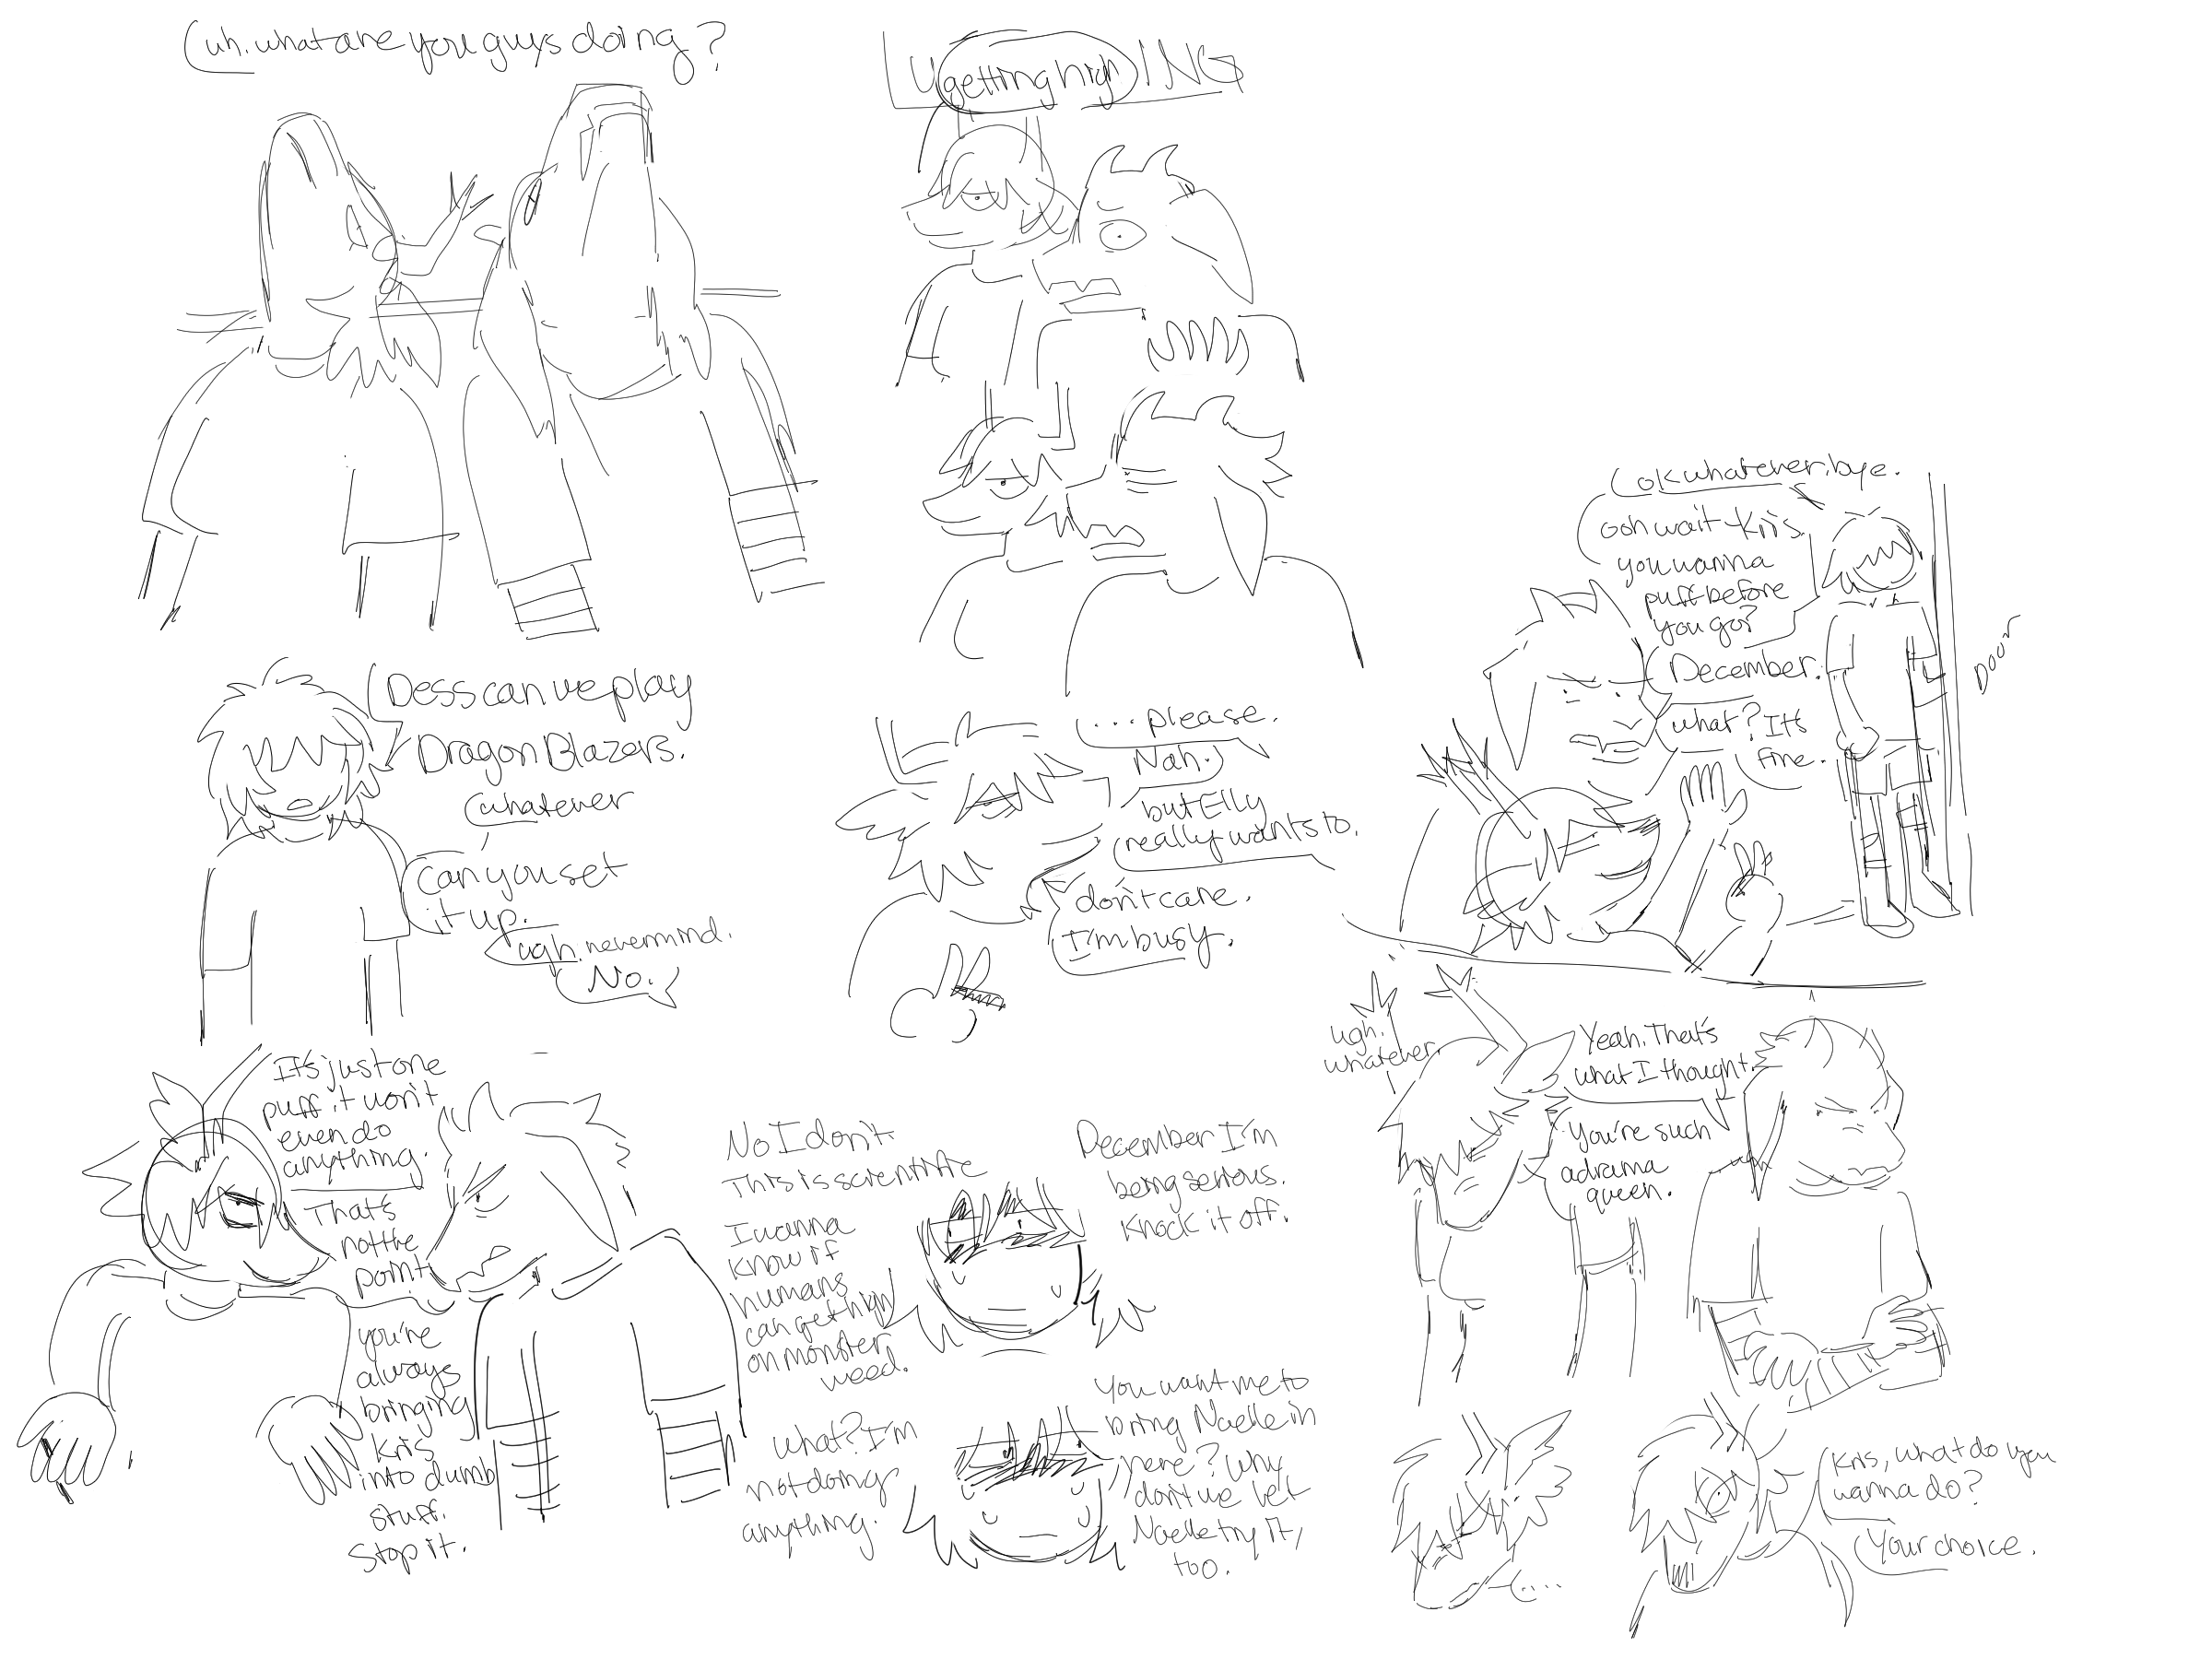 uh. what are you guys doing?
U getting high ING
Dess can we play
Dragon Blazers.
whatever
can you set
it up.
ugh. nevermind.
No.
...please.
Nah.
but Elly
really wants to.
don't care.
I'm busy.
ok whatever. bye.
ooh wait - Kris.
you wanna
puff before
you go?
December.
what? It's
fine.
Door
It's just one
puff. it won't
even do
anything.
That's
not the
point.
you're
always
bringing
Kris
into dumb
stuff.
Stop it.
No I don't
This is scientific
I wanna
know if
humans
can get high
on monster
weed.
December I'm
being serious.
Knock it off.
What? I'm
not doing
anything.
You want me to
bring Noelle in
here? Why
don't we let
Noelle try it,
too.
ugh.
whatever.
Yeah. That's
what I thought.
You're such
a drama
queen.
....
Kris, what do you
wanna do?
Your choice.